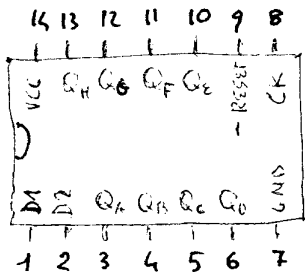 14 13 12 11 10 9 8
VCC QH QG QF QE RESET CK
D1 D2 QA QB QC QD GND
1 2 3 4 5 6 7